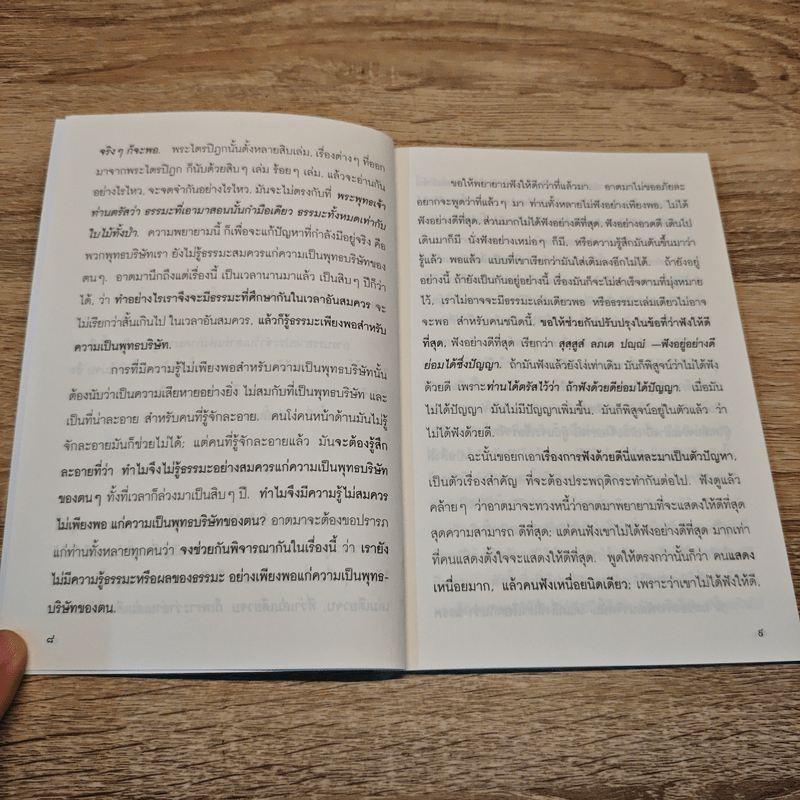 จริงๆ ก็จะพอ. พระไตรปิฎกนั้นตั้งหลายสิบเล่ม, เรื่องต่างๆ ที่ออก
มาจากพระไตรปิฎก ก็นับด้วยสิบๆ เล่ม ร้อยๆ เล่ม, แล้วจะอ่านกัน
อย่างไรไหว, จะจดจำกันอย่างไรไหว, มันจะไม่ตรงกับที่ พระพุทธเจ้า
ท่านตรัสว่า ธรรมะที่เอามาสอนนั้นกำมือเดียว ธรรมะทั้งหมดเท่ากับ
ใบไม้ทั้งป่า. ความพยายามนี้ ก็เพื่อจะแก้ปัญหาที่กำลังมีอยู่จริง คือ
พวกพุทธบริษัทเรา ยังไม่รู้ธรรมะสมควรแก่ความเป็นพุทธบริษัทของ
ตนๆ. อาตมานึกถึงแต่เรื่องนี้ เป็นเวลานานมาแล้ว เป็นสิบๆ ปีก็ว่า
ได้, ว่า ทำอย่างไรเราจึงจะมีธรรมะที่ศึกษากันในเวลาอันสมควร จะ
ไม่เรียกว่าสั้นเกินไป ในเวลาอันสมควร, แล้วก็รู้ธรรมะเพียงพอสำหรับ
ความเป็นพุทธบริษัท.
การที่มีความรู้ไม่เพียงพอสำหรับความเป็นพุทธบริษัทนั้น
ต้องนับว่าเป็นความเสียหายอย่างยิ่ง ไม่สมกับที่เป็นพุทธบริษัท และ
เป็นที่น่าละอาย สำหรับคนที่รู้จักละอาย. คนโง่คนหน้าด้านมันไม่รู้
จักละอายมันก็ช่วยไม่ได้; แต่คนที่รู้จักละอายแล้ว มันจะต้องรู้สึก
ละอายที่ว่า ทำไมจึงไม่รู้ธรรมะอย่างสมควรแก่ความเป็นพุทธบริษัท
ของตนๆ ทั้งที่เวลาก็ล่วงมาเป็นสิบๆ ปี. ทำไมจึงมีความรู้ไม่สมควร
ไม่เพียงพอ แก่ความเป็นพุทธบริษัทของตน? อาตมาจะต้องขอปรารภ
แก่ท่านทั้งหลายทุกคนว่า จงช่วยกันพิจารณากันในเรื่องนี้ ว่า เรายัง
ไม่มีความรู้ธรรมะหรือผลของธรรมะ อย่างเพียงพอแก่ความเป็นพุทธ-
บริษัทของตน.
๘
ขอให้พยายามฟังให้ดีกว่าที่แล้วมา. อาตมาไม่ขออภัยละ
อยากจะพูดว่าที่แล้วๆ มา ท่านทั้งหลายไม่ฟังอย่างเพียงพอ, ไม่ได้
ฟังอย่างดีที่สุด, ส่วนมากไม่ได้ฟังอย่างดีที่สุด, ฟังอย่างอวดดี เดินไป
เดินมาก็มี นั่งฟังอย่างเหม่อๆ ก็มี, หรือความรู้สึกมันดันขึ้นมาว่า
รู้แล้ว พอแล้ว แบบที่เขาเรียกว่ามันใส่เติมลงอีกไม่ได้. ถ้ายังอยู่
อย่างนี้ ถ้ายังเป็นกันอยู่อย่างนี้ เรื่องมันก็จะไม่สำเร็จตามที่มุ่งหมาย
ไว้. เราไม่อาจจะมีธรรมะเล่มเดียวพอ หรือธรรมะเล่มเดียวไม่อาจ
จะพอ สำหรับคนชนิดนี้. ขอให้ช่วยกันปรับปรุงในข้อที่ว่าฟังให้ดี
ที่สุด, ฟังอย่างดีที่สุด เรียกว่า สุสฺสูสํ ลภเต ปญฺญํ —ฟังอยู่อย่างดี
ย่อมได้ซึ่งปัญญา. ถ้ามันฟังแล้วยังโง่เท่าเดิม มันก็พิสูจน์ว่าไม่ได้ฟัง
ด้วยดี เพราะท่านได้ตรัสไว้ว่า ถ้าฟังด้วยดีย่อมได้ปัญญา. เมื่อมัน
ไม่ได้ปัญญา มันไม่มีปัญญาเพิ่มขึ้น, มันก็พิสูจน์อยู่ในตัวแล้ว ว่า
ไม่ได้ฟังด้วยดี.
ฉะนั้นขอยกเอาเรื่องการฟังด้วยดีนี่แหละมาเป็นตัวปัญหา,
เป็นตัวเรื่องสำคัญ ที่จะต้องประพฤติกระทำกันต่อไป. ฟังดูแล้ว
คล้ายๆ ว่าอาตมาจะทวงหนี้ว่าอาตมาพยายามที่จะแสดงให้ดีที่สุด
สุดความสามารถ ดีที่สุด; แต่คนฟังเขาไม่ได้ฟังอย่างดีที่สุด มากเท่า
ที่คนแสดงตั้งใจจะแสดงให้ดีที่สุด. พูดให้ตรงกว่านั้นก็ว่า คนแสดง
เหนื่อยมาก, แล้วคนฟังเหนื่อยนิดเดียว; เพราะว่าเขาไม่ได้ฟังให้ดี.
๙